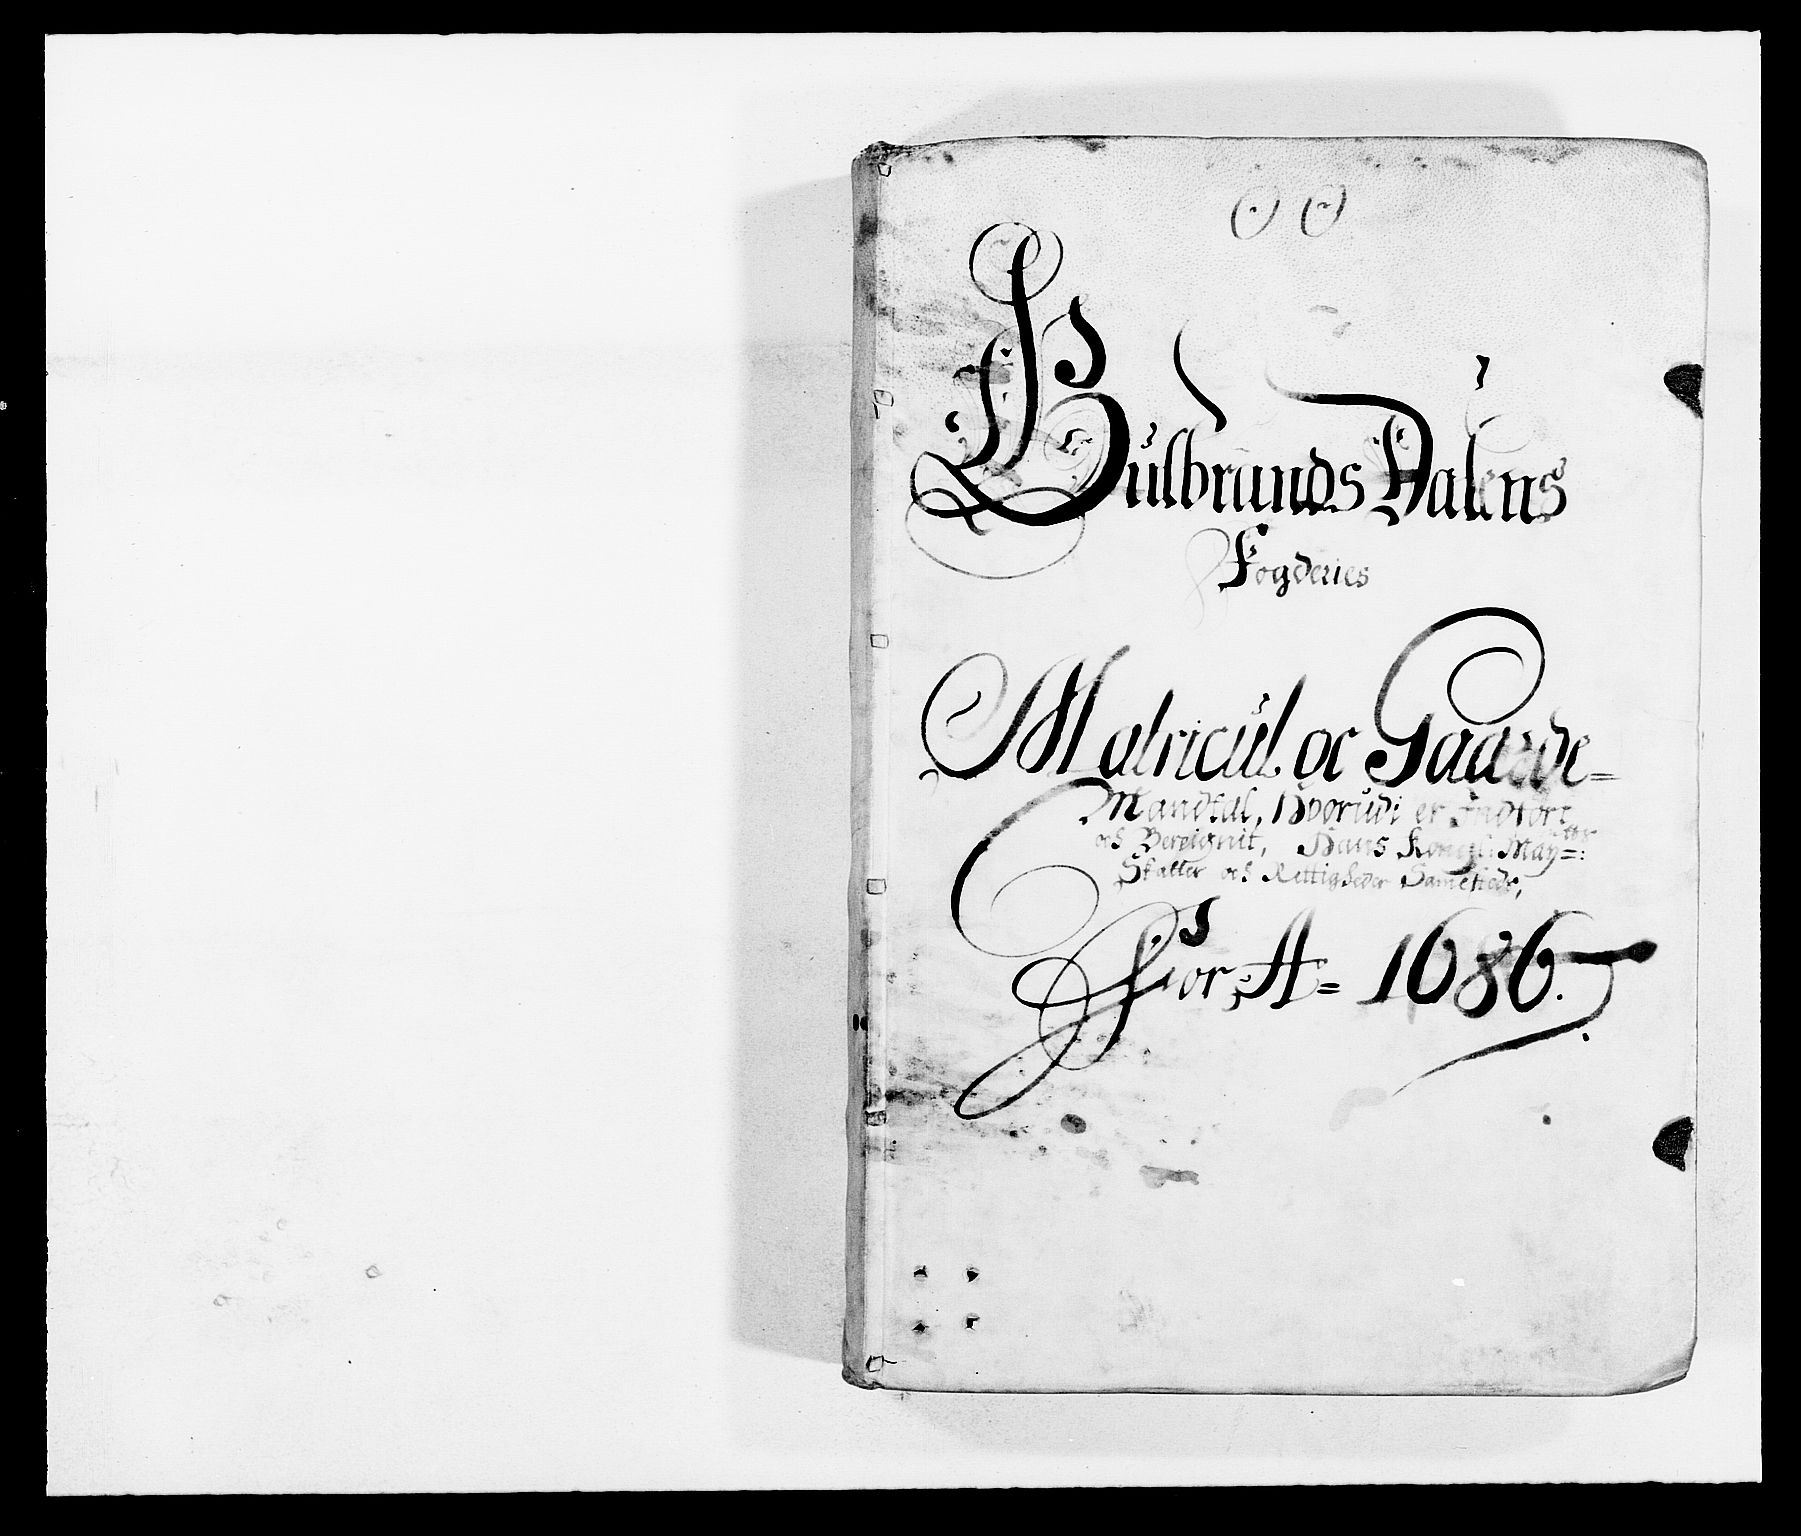 Gulbrands Dalens
Fogderies
Matricul oc Gaarde=
Mandtal, Hvorudi er Indført
och Beregnit, Hans Kongl: May=tts:
Skatter och Rettigheder Sammestedz,
For A= 1686.